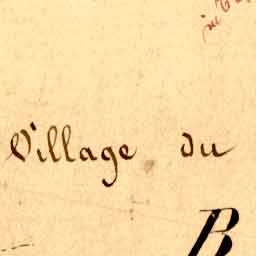 Village du
B